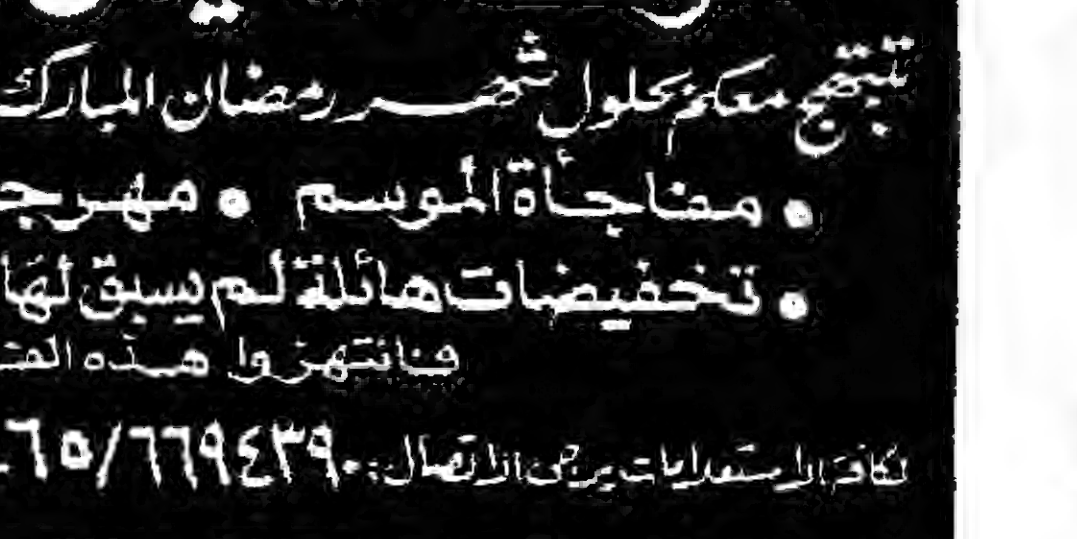 تبتهج معكم بحلول شهر رمضان المبارك
• مفاجأة الموسم • مهرجـ
• تخفيضات هائلة لم يسبق لها
فانتهزوا هذه الفتـ
لكافة الاستعلامات يرجى الاتصال: ٦٥/٦٦٩٤٣٩٠